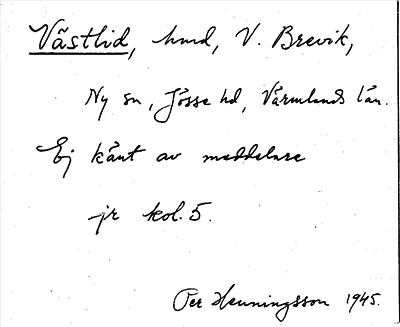 Västlid, hmd, V. Brevik,
Ny sn, Jösse hd, Värmlands län.
Ej känt av meddelare
jr kol. 5.
Per Henningsson 1945.